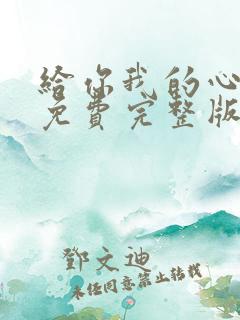 给你我的心
免费完整版
邓文迪
未经同意禁止转载